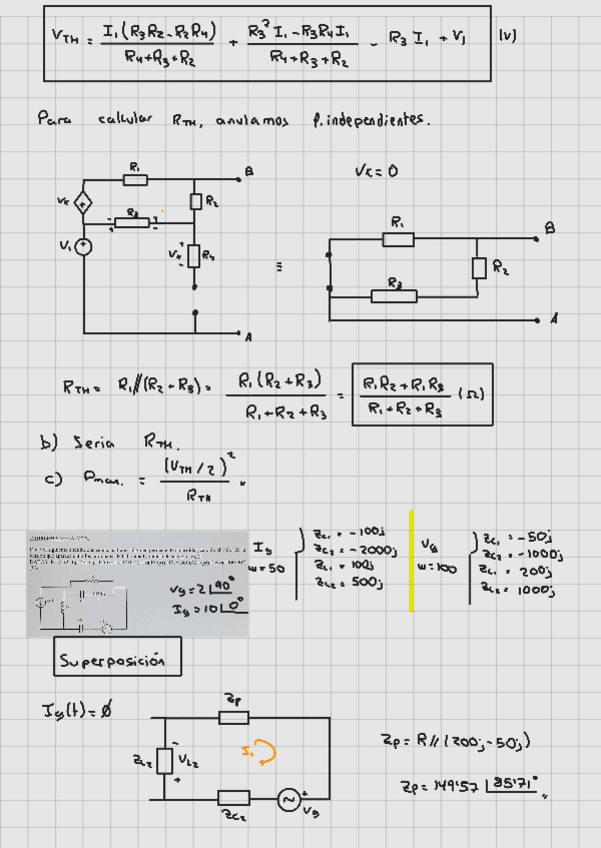 V_TH = I₁(R₃R₂ - R₂R₄) / (R₄+R₃+R₂) + (R₃² I₁ - R₃R₄I₁) / (R₄+R₃+R₂) - R₃ I₁ + V₁ (V)
Para calcular R_TH, anulamos f. independientes.
R₁ B
Vx R₂
R₃
V₁ Vx R₄
A
Vx = 0
≡
R₁ B
R₂
R₃
A
R_TH = R₁//(R₂+R₃) = R₁(R₂+R₃) / (R₁+R₂+R₃) = (R₁R₂+R₁R₃) / (R₁+R₂+R₃) (Ω)
b) Seria R_TH.
c) Pmax. = (V_TH/2)² / R_TH
Vg = 2∟90°
Ig = 10∟0°
Ig
w=50
Zc₁ = -100j
Zc₂ = -2000j
ZL₁ = 100j
ZL₂ = 500j
Vg
w=100
Zc₁ = -50j
Zc₂ = -1000j
ZL₁ = 200j
ZL₂ = 1000j
Superposición
Ig(t) = Ø
Zp
ZL₂ VL₂
I₁
Zc₂ Vg
Zp = R//(200j-50j)
Zp = 149'57